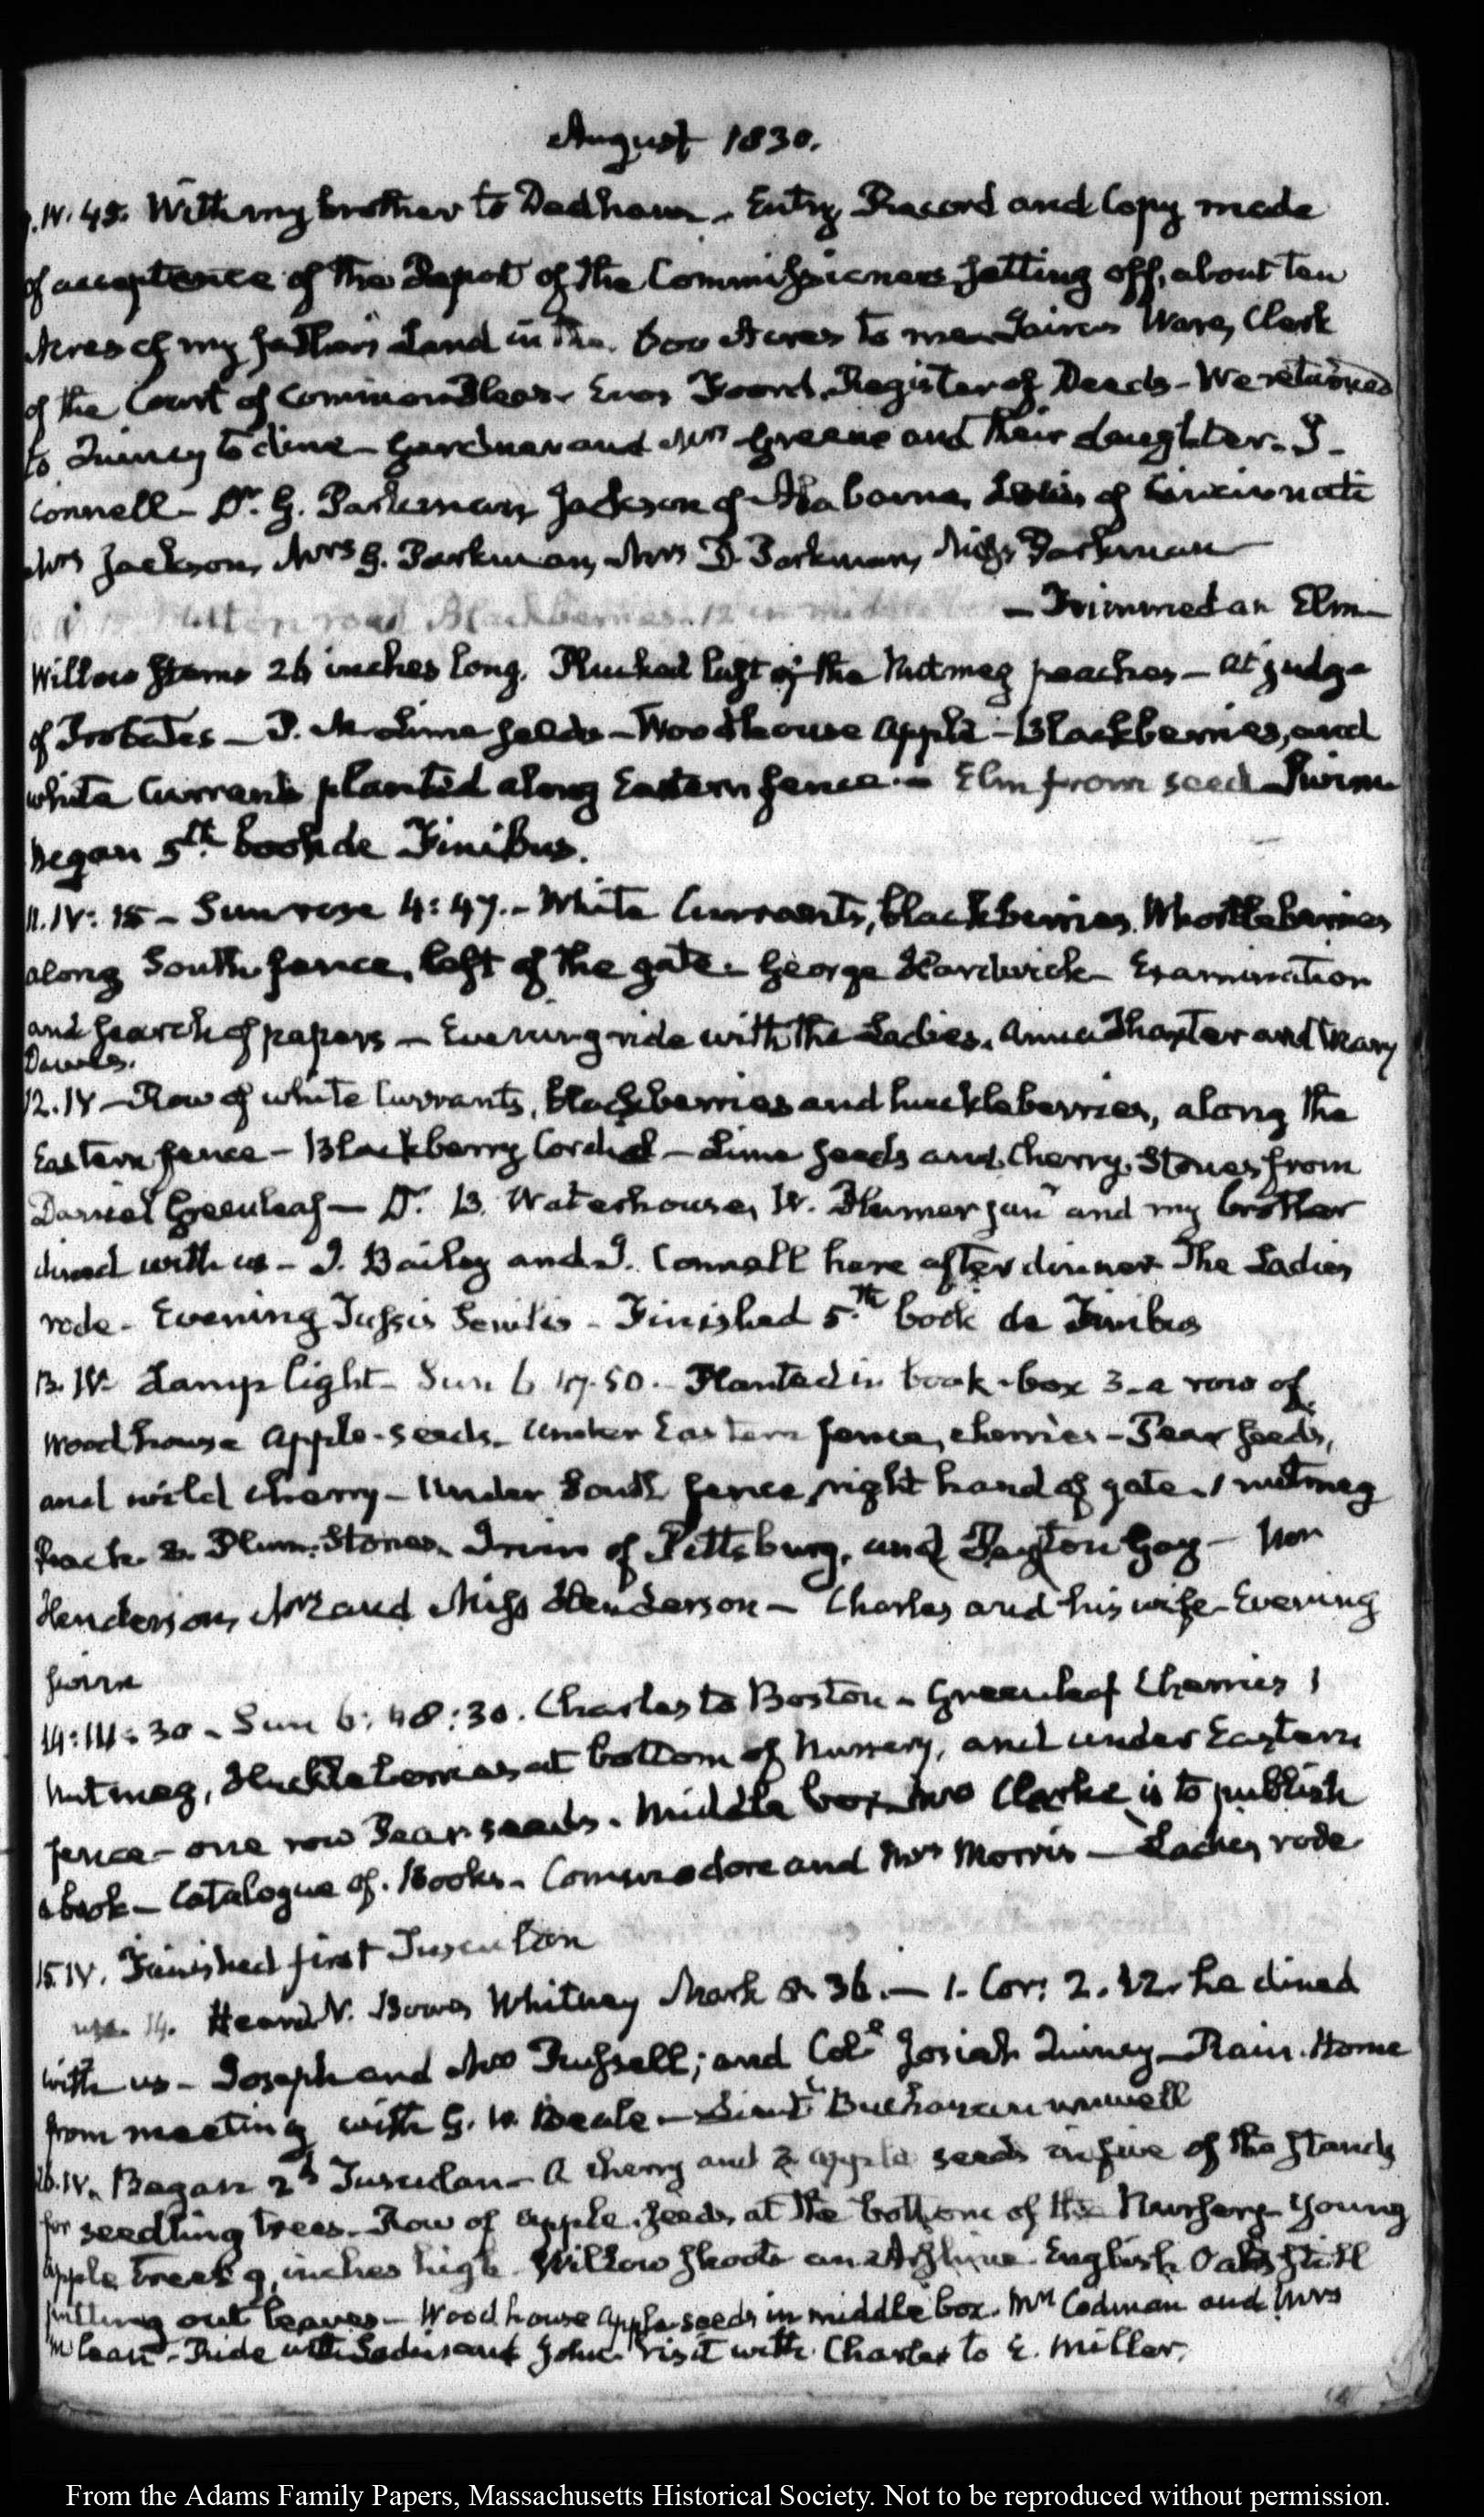 August 1830.
IV. 45. With my brother to Dedham - Entry, Record and Copy made
of acceptance of the Report of the Commissioners setting off, about ten
Acres of my father's Land in the 600 Acres to me. Jairus Ware, Clerk
of the Court of Common Pleas - Enos Foord, Register of Deeds - We returned
to Quincy to dine - Gardner and Mrs Greene and their daughter. J.
Connell - Dr. G. Parkman, Jackson of Alabama, of Cincinnati
Mrs Jackson, Mrs G. Parkman, Mrs D. Parkman, Miss Parkman
road Blackberries. 12 in - Trimmed an Elm -
Willow stems 26 inches long. Plucked last of the Nutmeg peaches - at Judge
of Probates - Lime seeds - Woodhouse Apple - Blackberries, and
white Currants planted along Eastern fence - Elm from seed - Swim
Began 5th. book de Finibus.
11. IV: 15 - Sun rose 4:47. - White Currants, blackberries, Whortleberries
along South fence, left of the gate - George Hardwick - Examination
and search of papers - Evening ride with the Ladies. Anna Thaxter and Mary
Dawes.
12. IV - Row of white Currants, blackberries and huckleberries, along the
Eastern fence - Blackberry Cordial - Lime seeds and Cherry Stones from
Daniel Greenleaf - Dr. B. Waterhouse, W. Plumer junr and my brother
dined with us - J. Bailey and J. Connell here after dinner - The Ladies
rode - Evening Tussis Senilis - Finished 5.th book de Finibus
13. IV. Lamp light - Sun 6 47.50. - Planted in book-box 3 - a row of
Woodhouse apple-seeds. Under Eastern fence, cherries - Pear seeds,
and wild cherry - Under South fence, right hand of gate. 1 nutmeg
Peach. 2. Plum. Stones. Irwin of Pittsburg, and Payton Gay -
Henderson, Mrs and Miss Henderson - Charles and his wife - Evening
swim
14: IV: 30 - Sun 6: 48: 30. Charles to Boston - Greenleaf Cherries 1
Nutmeg, Huckleberries at bottom of Nursery, and under Eastern
fence - one row Pear seeds. Middle box Mrs Clarke is to publish
a book - Catalogue of Books - Commodore and Mrs Morris - Ladies rode
15. IV. Finished first Tusculan
Heard N. Bowes Whitney Mark 8. 36. - 1. Cor: 2. 12. he dined
with us - Joseph and Mrs Russell; and Coll Josiah Quincy - Rain. Home
from meeting with G. W. Beale - Lieutt Buchanan unwell
16. IV. Began 2d Tusculan - A cherry and 2 apple seeds in five of the stands
for seedling trees. Row of apple seeds, at the bottom of the Nursery - Young
apple trees 9 inches high. Willow shoots English Oaks still
putting out leaves - Woodhouse apple seeds in middle box. Mrs Codman and Mrs
McLean - Ride with Ladies and John. Visit with Charles to E. Miller.
From the Adams Family Papers, Massachusetts Historical Society. Not to be reproduced without permission.